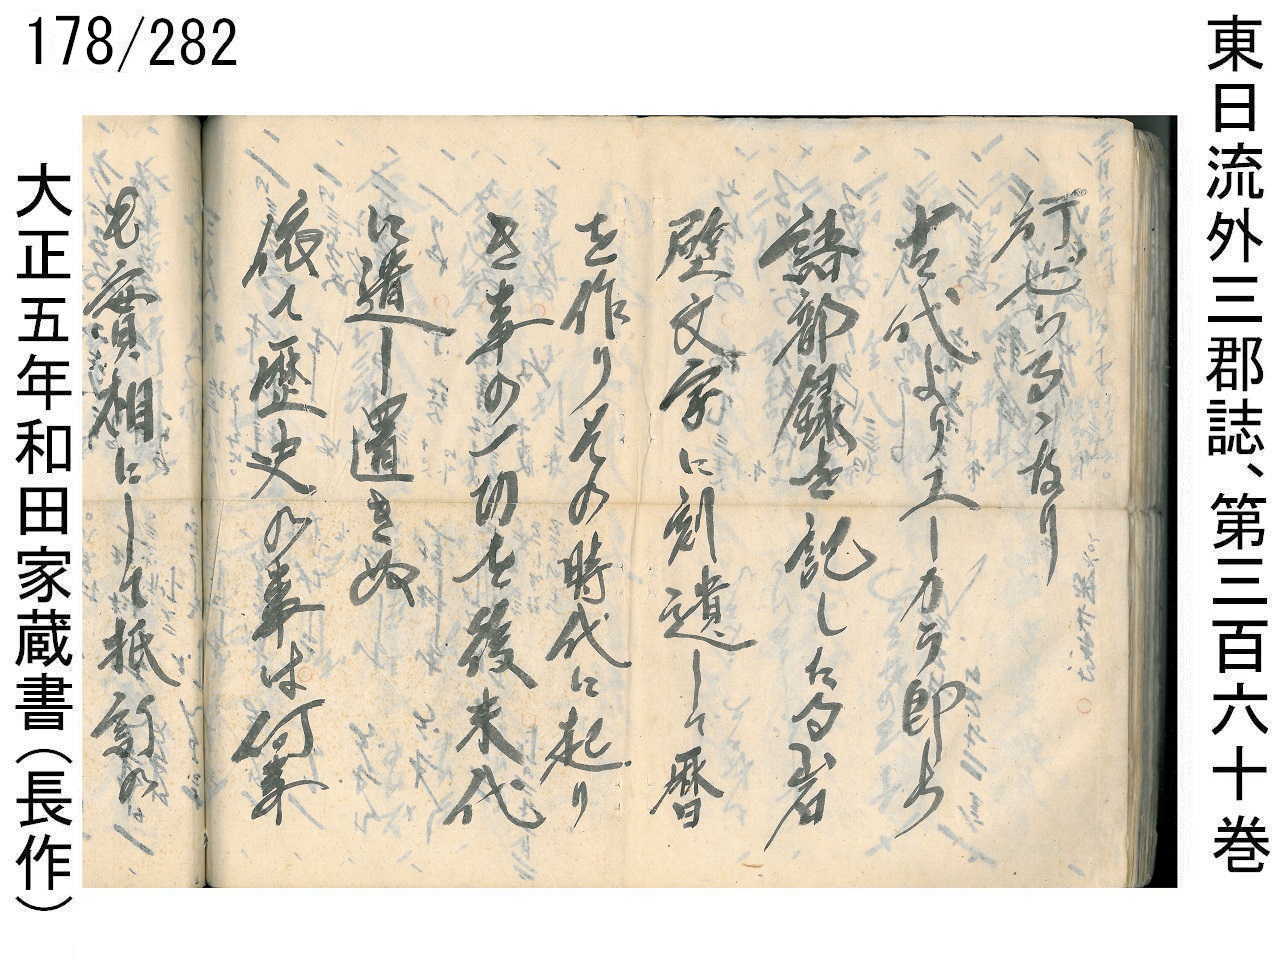 178/282
東日流外三郡誌、第三百六十巻
訂せらるゝ故り
古代よりエーカラ即ち
諸部録を記したる岩
壁文字に刻遺して暦
を作りその時代に起り
き事の一切を後来代
に遺し置きぬ
依て歴史の事は何事
も實相にして抵訂の
大正五年和田家蔵書（長作）